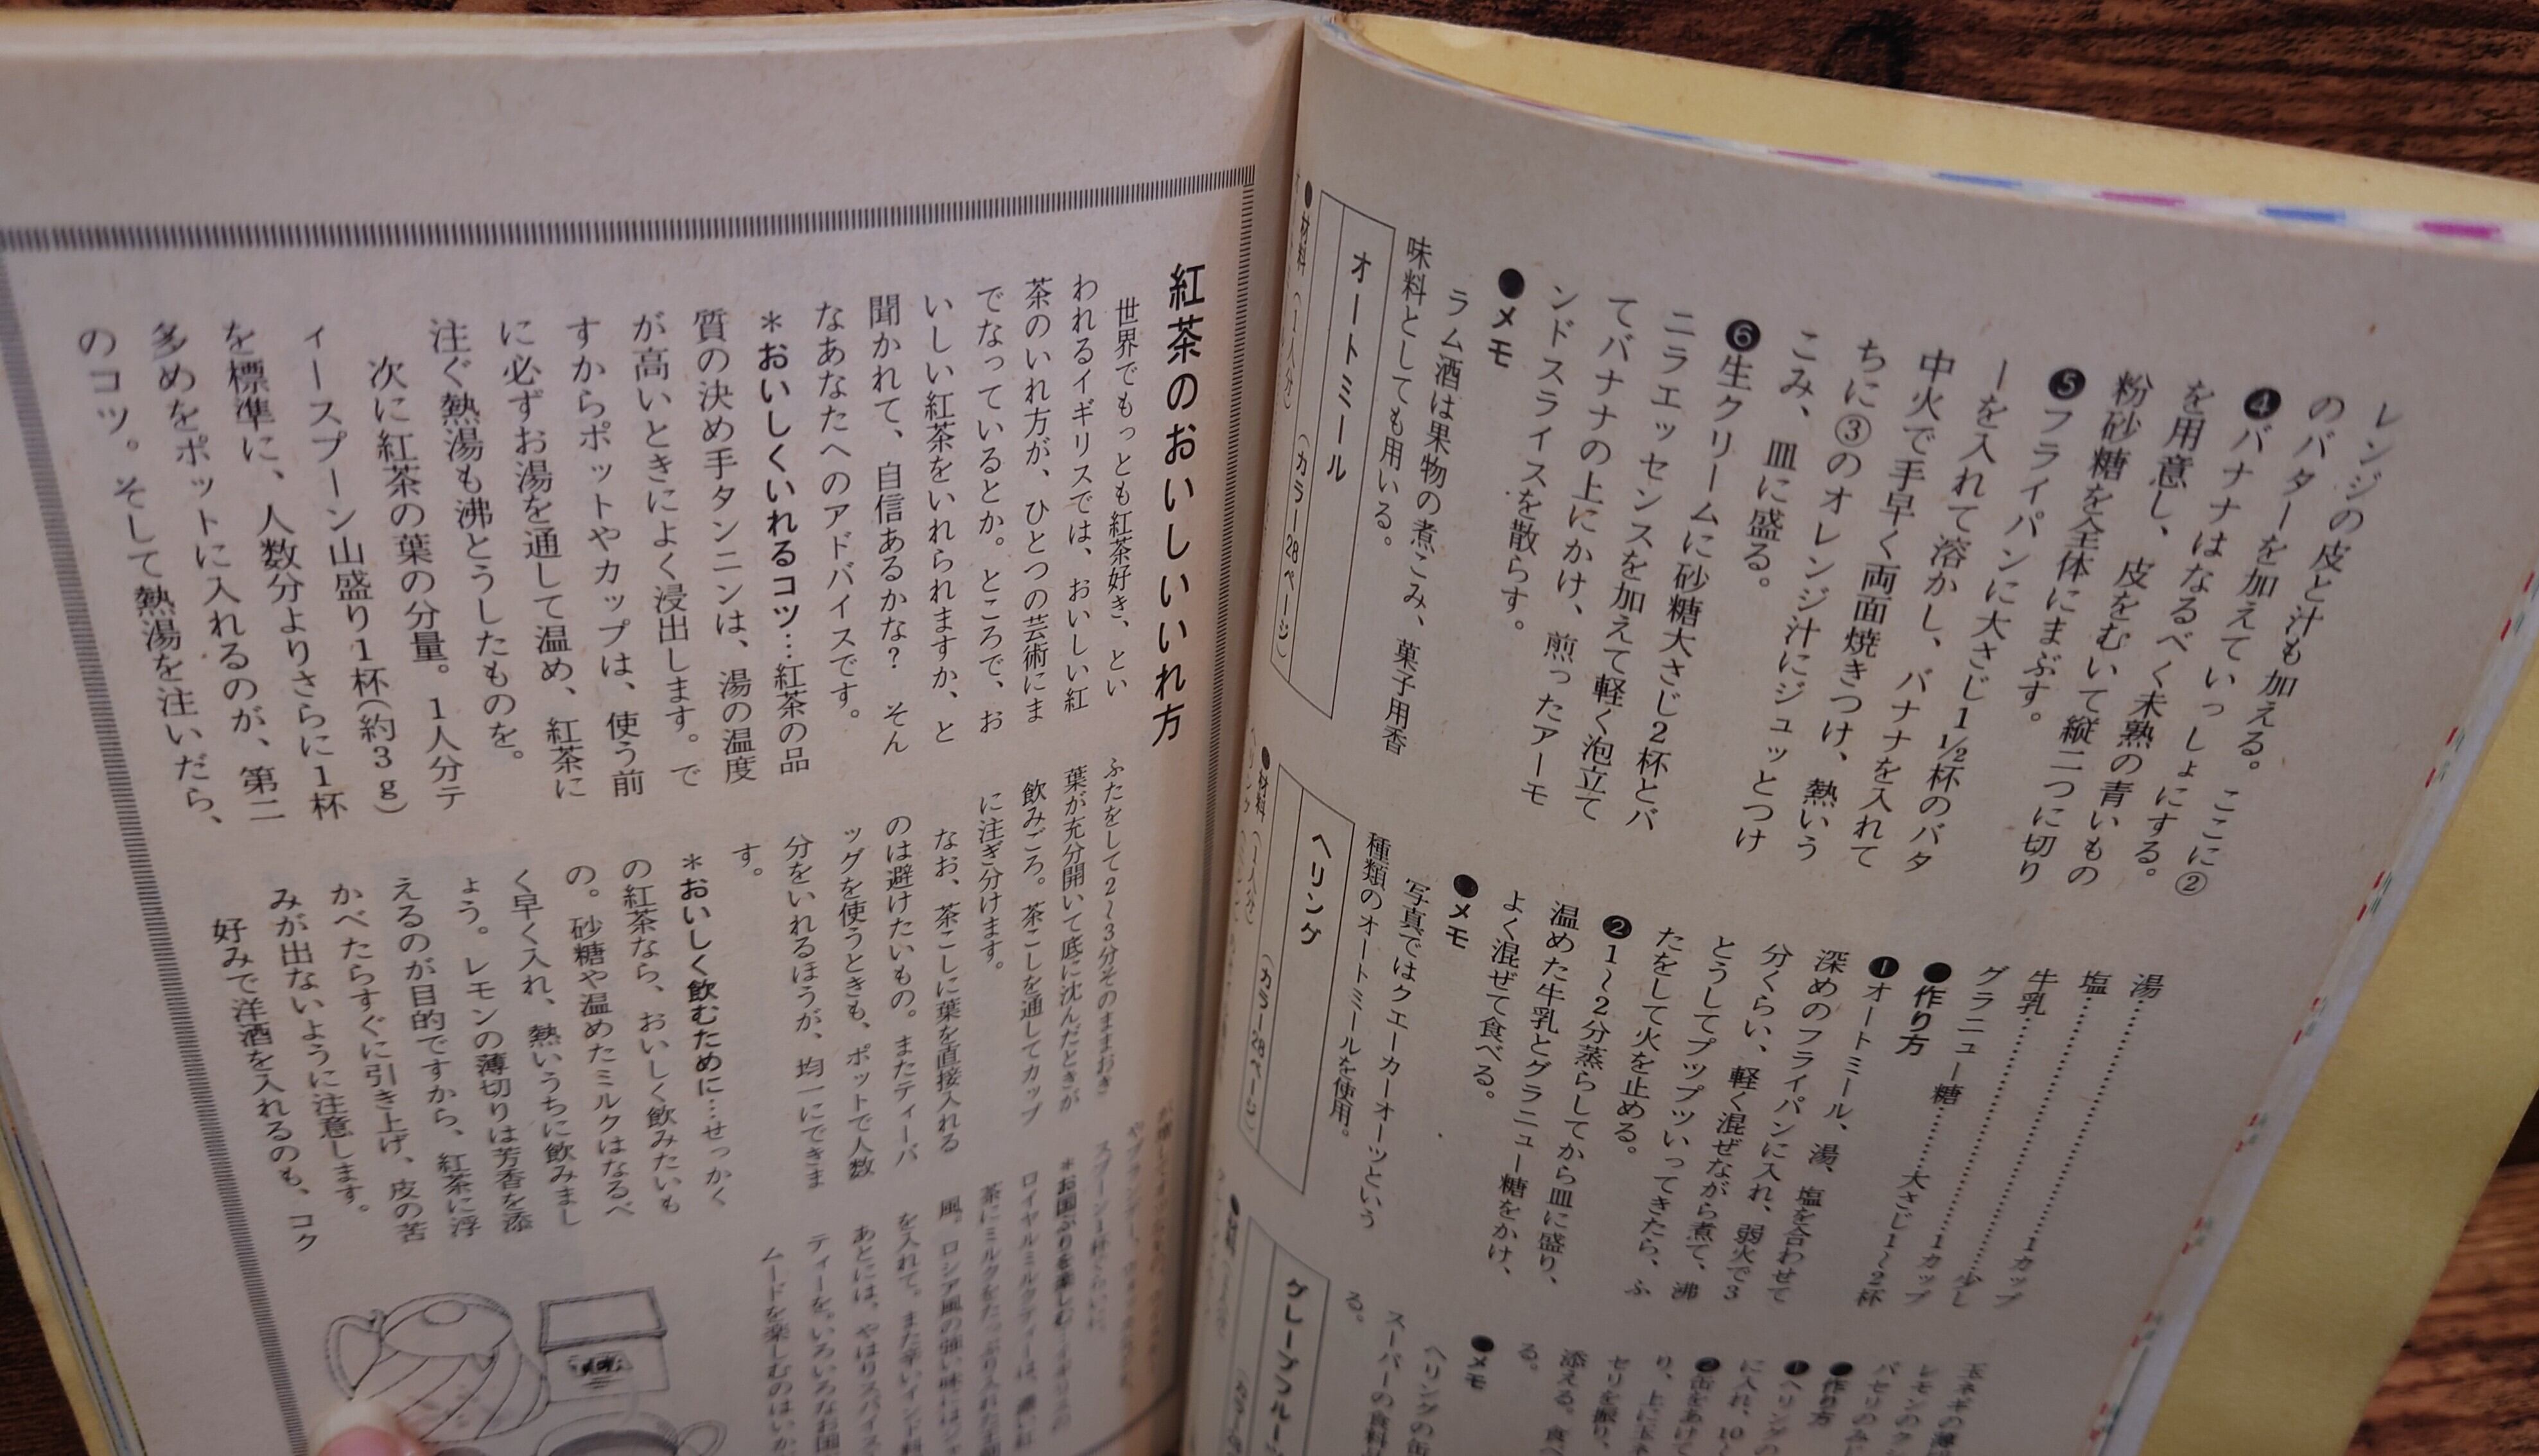 レンジの皮と汁も加える。ここに②
のバターを加えていっしょにする。
❹バナナはなるべく未熟の青いもの
を用意し、皮をむいて縦二つに切り
粉砂糖を全体にまぶす。
❺フライパンに大さじ1½杯のバタ
ーを入れて溶かし、バナナを入れて
中火で手早く両面焼きつけ、熱いう
ちに③のオレンジ汁にジュッとつけ
こみ、皿に盛る。
❻生クリームに砂糖大さじ2杯とバ
ニラエッセンスを加えて軽く泡立て
てバナナの上にかけ、煎ったアーモ
ンドスライスを散らす。
●メモ
ラム酒は果物の煮こみ、菓子用香
味料としても用いる。
オートミール
(カラー28ページ)
●材料(1人分)
湯……1カップ
塩……少し
牛乳……1カップ
グラニュー糖……大さじ1〜2杯
●作り方
❶オートミール、湯、塩を合わせて
深めのフライパンに入れ、弱火で3
分くらい、軽く混ぜながら煮て、沸
とうしてプップツいってきたら、ふ
たをして火を止める。
❷1〜2分蒸らしてから皿に盛り、
温めた牛乳とグラニュー糖をかけ、
よく混ぜて食べる。
●メモ
写真ではクエーカーオーツという
種類のオートミールを使用。
ヘリング
(カラー28ページ)
●材料(1人分)
玉ネギの薄
レモンのク
パセリのみじ
●作り方
❶ヘリングの
に入れ、10
❷缶をあけて
り、上に玉ネ
セリを振り、
添える。食べ
る。
●メモ
ヘリングの缶
スーパーの食料
る。
グレープフルーツ
紅茶のおいしいいれ方
世界でもっとも紅茶好き、とい
われるイギリスでは、おいしい紅
茶のいれ方が、ひとつの芸術にま
でなっているとか。ところで、お
いしい紅茶をいれられますか、と
聞かれて、自信あるかな? そん
なあなたへのアドバイスです。
*おいしくいれるコツ…紅茶の品
質の決め手タンニンは、湯の温度
が高いときによく浸出します。で
すからポットやカップは、使う前
に必ずお湯を通して温め、紅茶に
注ぐ熱湯も沸とうしたものを。
次に紅茶の葉の分量。1人分テ
ィースプーン山盛り1杯(約3g)
を標準に、人数分よりさらに1杯
多めをポットに入れるのが、第二
のコツ。そして熱湯を注いだら、
ふたをして2〜3分そのままおき
葉が充分開いて底に沈んだときが
飲みごろ。茶こしを通してカップ
に注ぎ分けます。
なお、茶こしに葉を直接入れる
のは避けたいもの。またティーバ
ッグを使うときも、ポットで人数
分をいれるほうが、均一にできま
す。
*おいしく飲むために…せっかく
の紅茶なら、おいしく飲みたいも
の。砂糖や温めたミルクはなるべ
く早く入れ、熱いうちに飲みまし
ょう。レモンの薄切りは芳香を添
えるのが目的ですから、紅茶に浮
かべたらすぐに引き上げ、皮の苦
みが出ないように注意します。
好みで洋酒を入れるのも、コク
スプーン1杯くらいに
*お国ぶりを楽しむ
ロイヤルミルクティーは、濃い紅
茶にミルクをたっぷり入れた
風。ロシア風の強い味にはジャ
を入れて。また辛いインド料
あとには、やはりスパイス
ティーを。いろいろなお国
ムードを楽しむのはいか